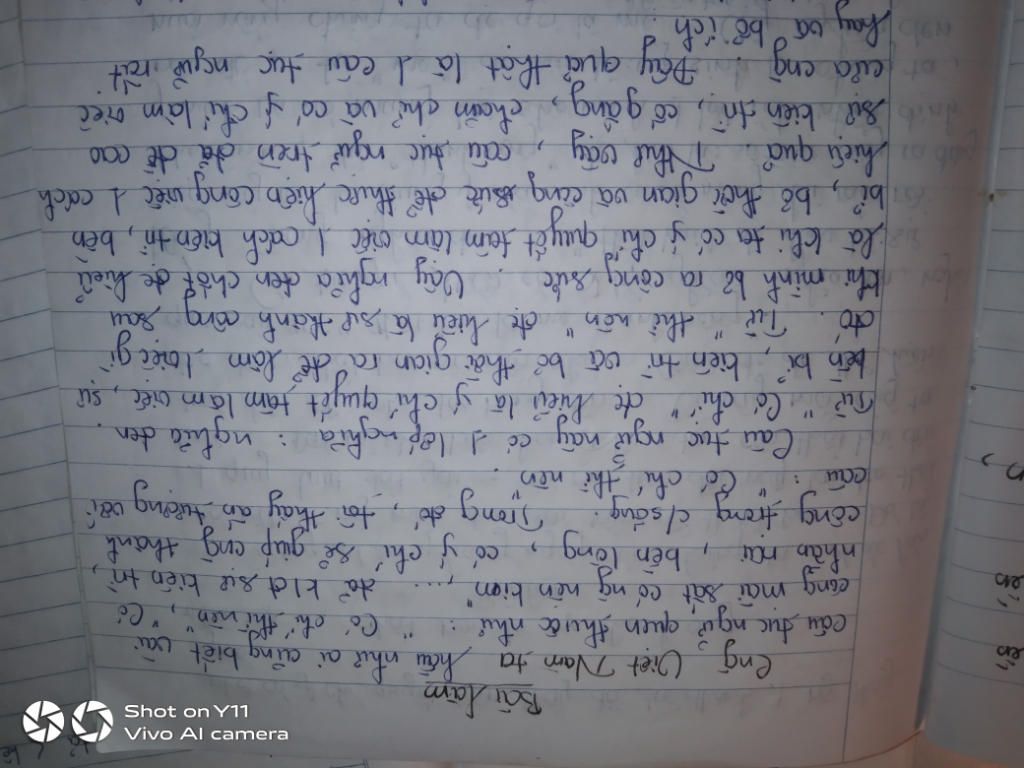 Bài làm
Cng Việt Nam ta hầu như ai cũng biết vài
câu tục ngữ quen thuộc như: "Có chí thì nên", "Có
công mài sắt có ng nên kim",... đã k/đ sự kiên trì,
nhẫn nại, bền lòng, có ý chí sẽ giúp cng thành
công trong c/sống. Trong đó, tôi thấy ấn tượng với
câu: "Có chí thì nên".
Câu tục ngữ này có 1 lớp nghĩa: nghĩa đen.
Từ "Có chí" đc hiểu là ý chí quyết tâm làm việc, sự
bền bỉ, kiên trì và bỏ thời gian ra để làm 1 việc gì
đó. Từ "thì nên" đc hiểu là sự thành công sau
khi mình bỏ ra công sức. Vậy nghĩa đen chốt đc hiểu
là khi ta có ý chí quyết tâm làm việc 1 cách kiên trì, bền
bỉ, bỏ thời gian và công sức để thực hiện công việc 1 cách
hiệu quả. Như vậy, câu tục ngữ trên đã đề cao
sự kiên trì, cố gắng, chăm chỉ và có ý chí làm việc
của cng. Đây quả thật là 1 câu tục ngữ rất
hay và bổ ích.
Shot on Y11
Vivo AI camera